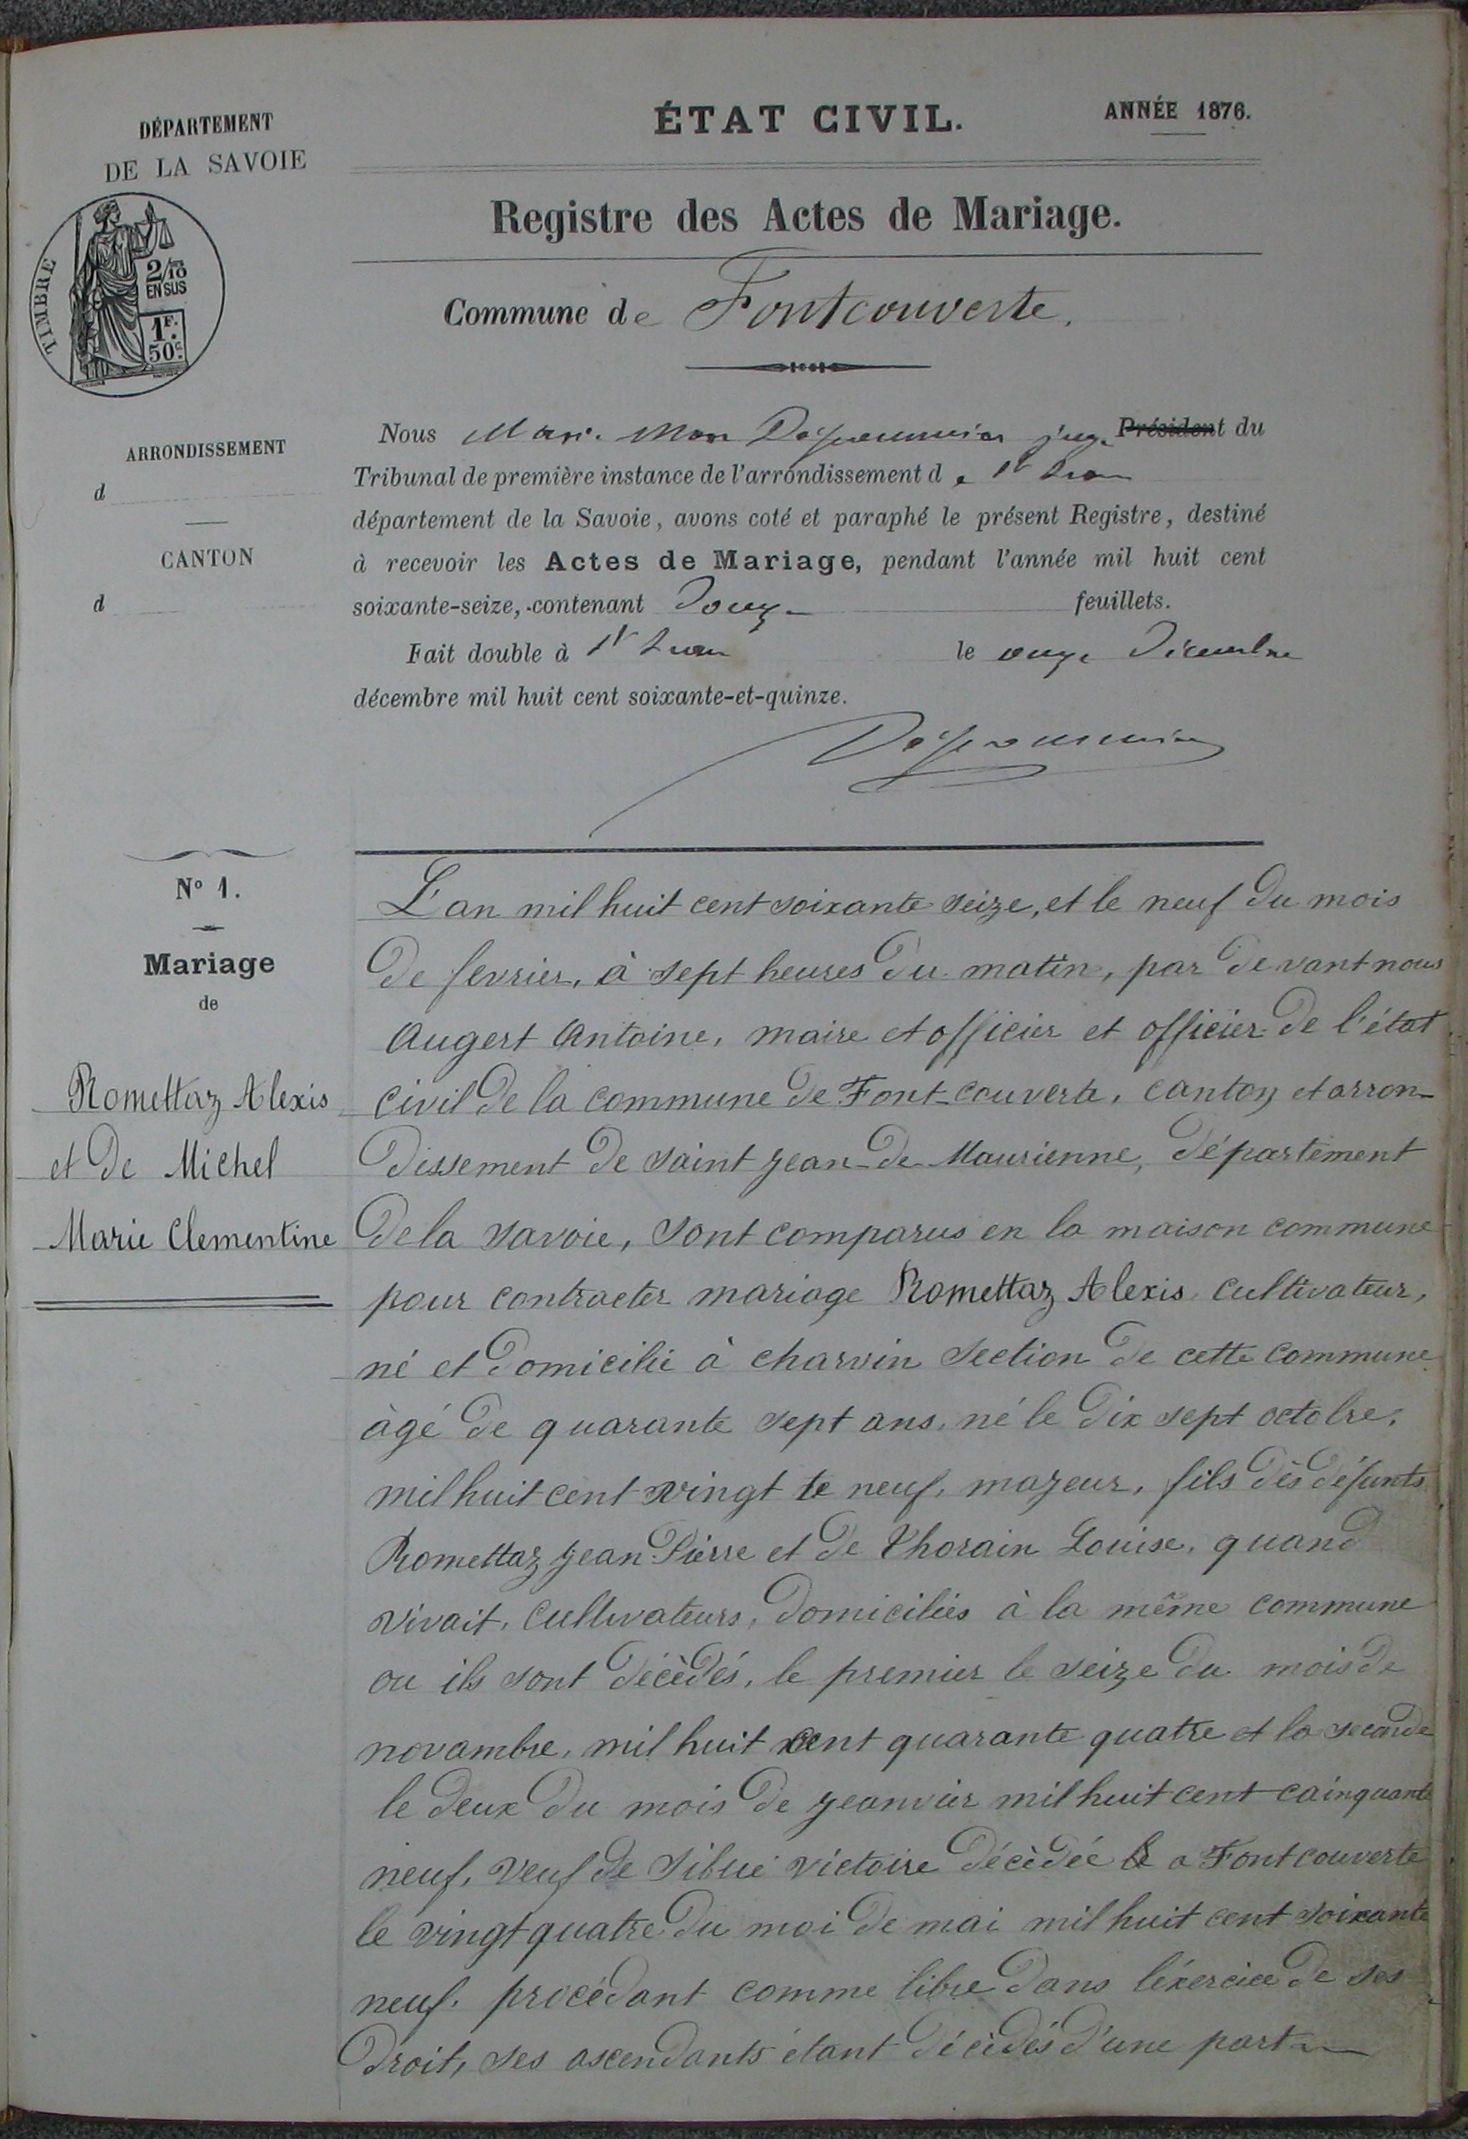 DÉPARTEMENT
DE LA SAVOIE
TIMBRE
2/10
EN SUS
1F.
50c.
ARRONDISSEMENT
d
CANTON
d
ÉTAT CIVIL.
ANNÉE 1876.
Registre des Actes de Mariage.
Commune de Fontcouverte.
Nous juge Président du
Tribunal de première instance de l'arrondissement de St Jean
département de la Savoie, avons coté et paraphé le présent Registre, destiné
à recevoir les Actes de Mariage, pendant l'année mil huit cent
soixante-seize, contenant douze feuillets.
Fait double à St Jean le onze Décembre
décembre mil huit cent soixante-et-quinze.
No 1.
Mariage
de
Romettaz Alexis
et de Michel
Marie Clementine
L'an mil huit cent soixante seize, et le neuf du mois
de fevrier, à sept heures du matin, par devant nous
Augert Antoine, maire et officier et officier de l'état
civil de la commune de Font-couverte, canton et arron-
dissement de saint jean de Maurienne, département
de la savoie, sont comparus en la maison commune
pour contracter mariage Romettaz Alexis cultivateur,
né et domicilié à charvin section de cette commune
âgé de quarante sept ans, né le dix sept octolre,
mil huit cent vingt te neuf, majeur, fils dès défunts
Romettaz jean Pierre et de Thorain Louise, quand
vivait, cultivateurs, domiciliés à la même commune
ou ils sont décèdés, le premier le seize du mois de
novambre, mil huit cent quarante quatre et la seconde
le deux du mois de jeanvier mil huit cent cainquante
neuf, veuf de Sibué victoire décèdée a Fontcouverte
le vingt quatre du moi de mai mil huit cent soixante
neuf. procédant comme libre dans léxercice de ses
droit, ses ascendants étant décèdés d'une part